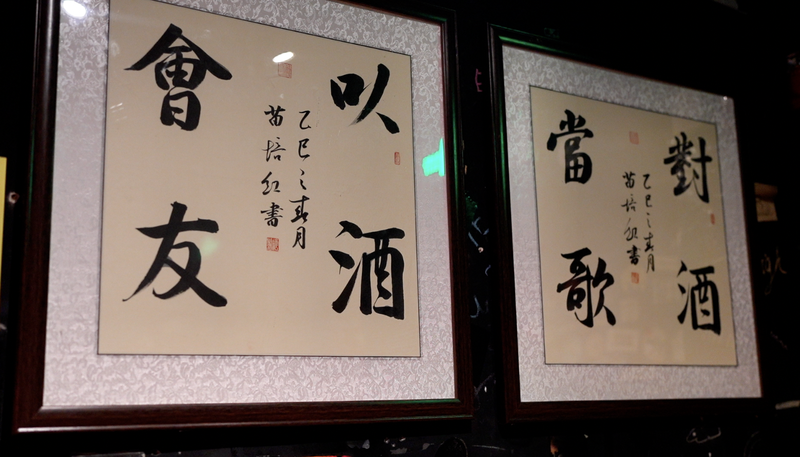 以酒
會友
乙巳之春月
苗培红書
對酒
當歌
乙巳之春月
苗培红書